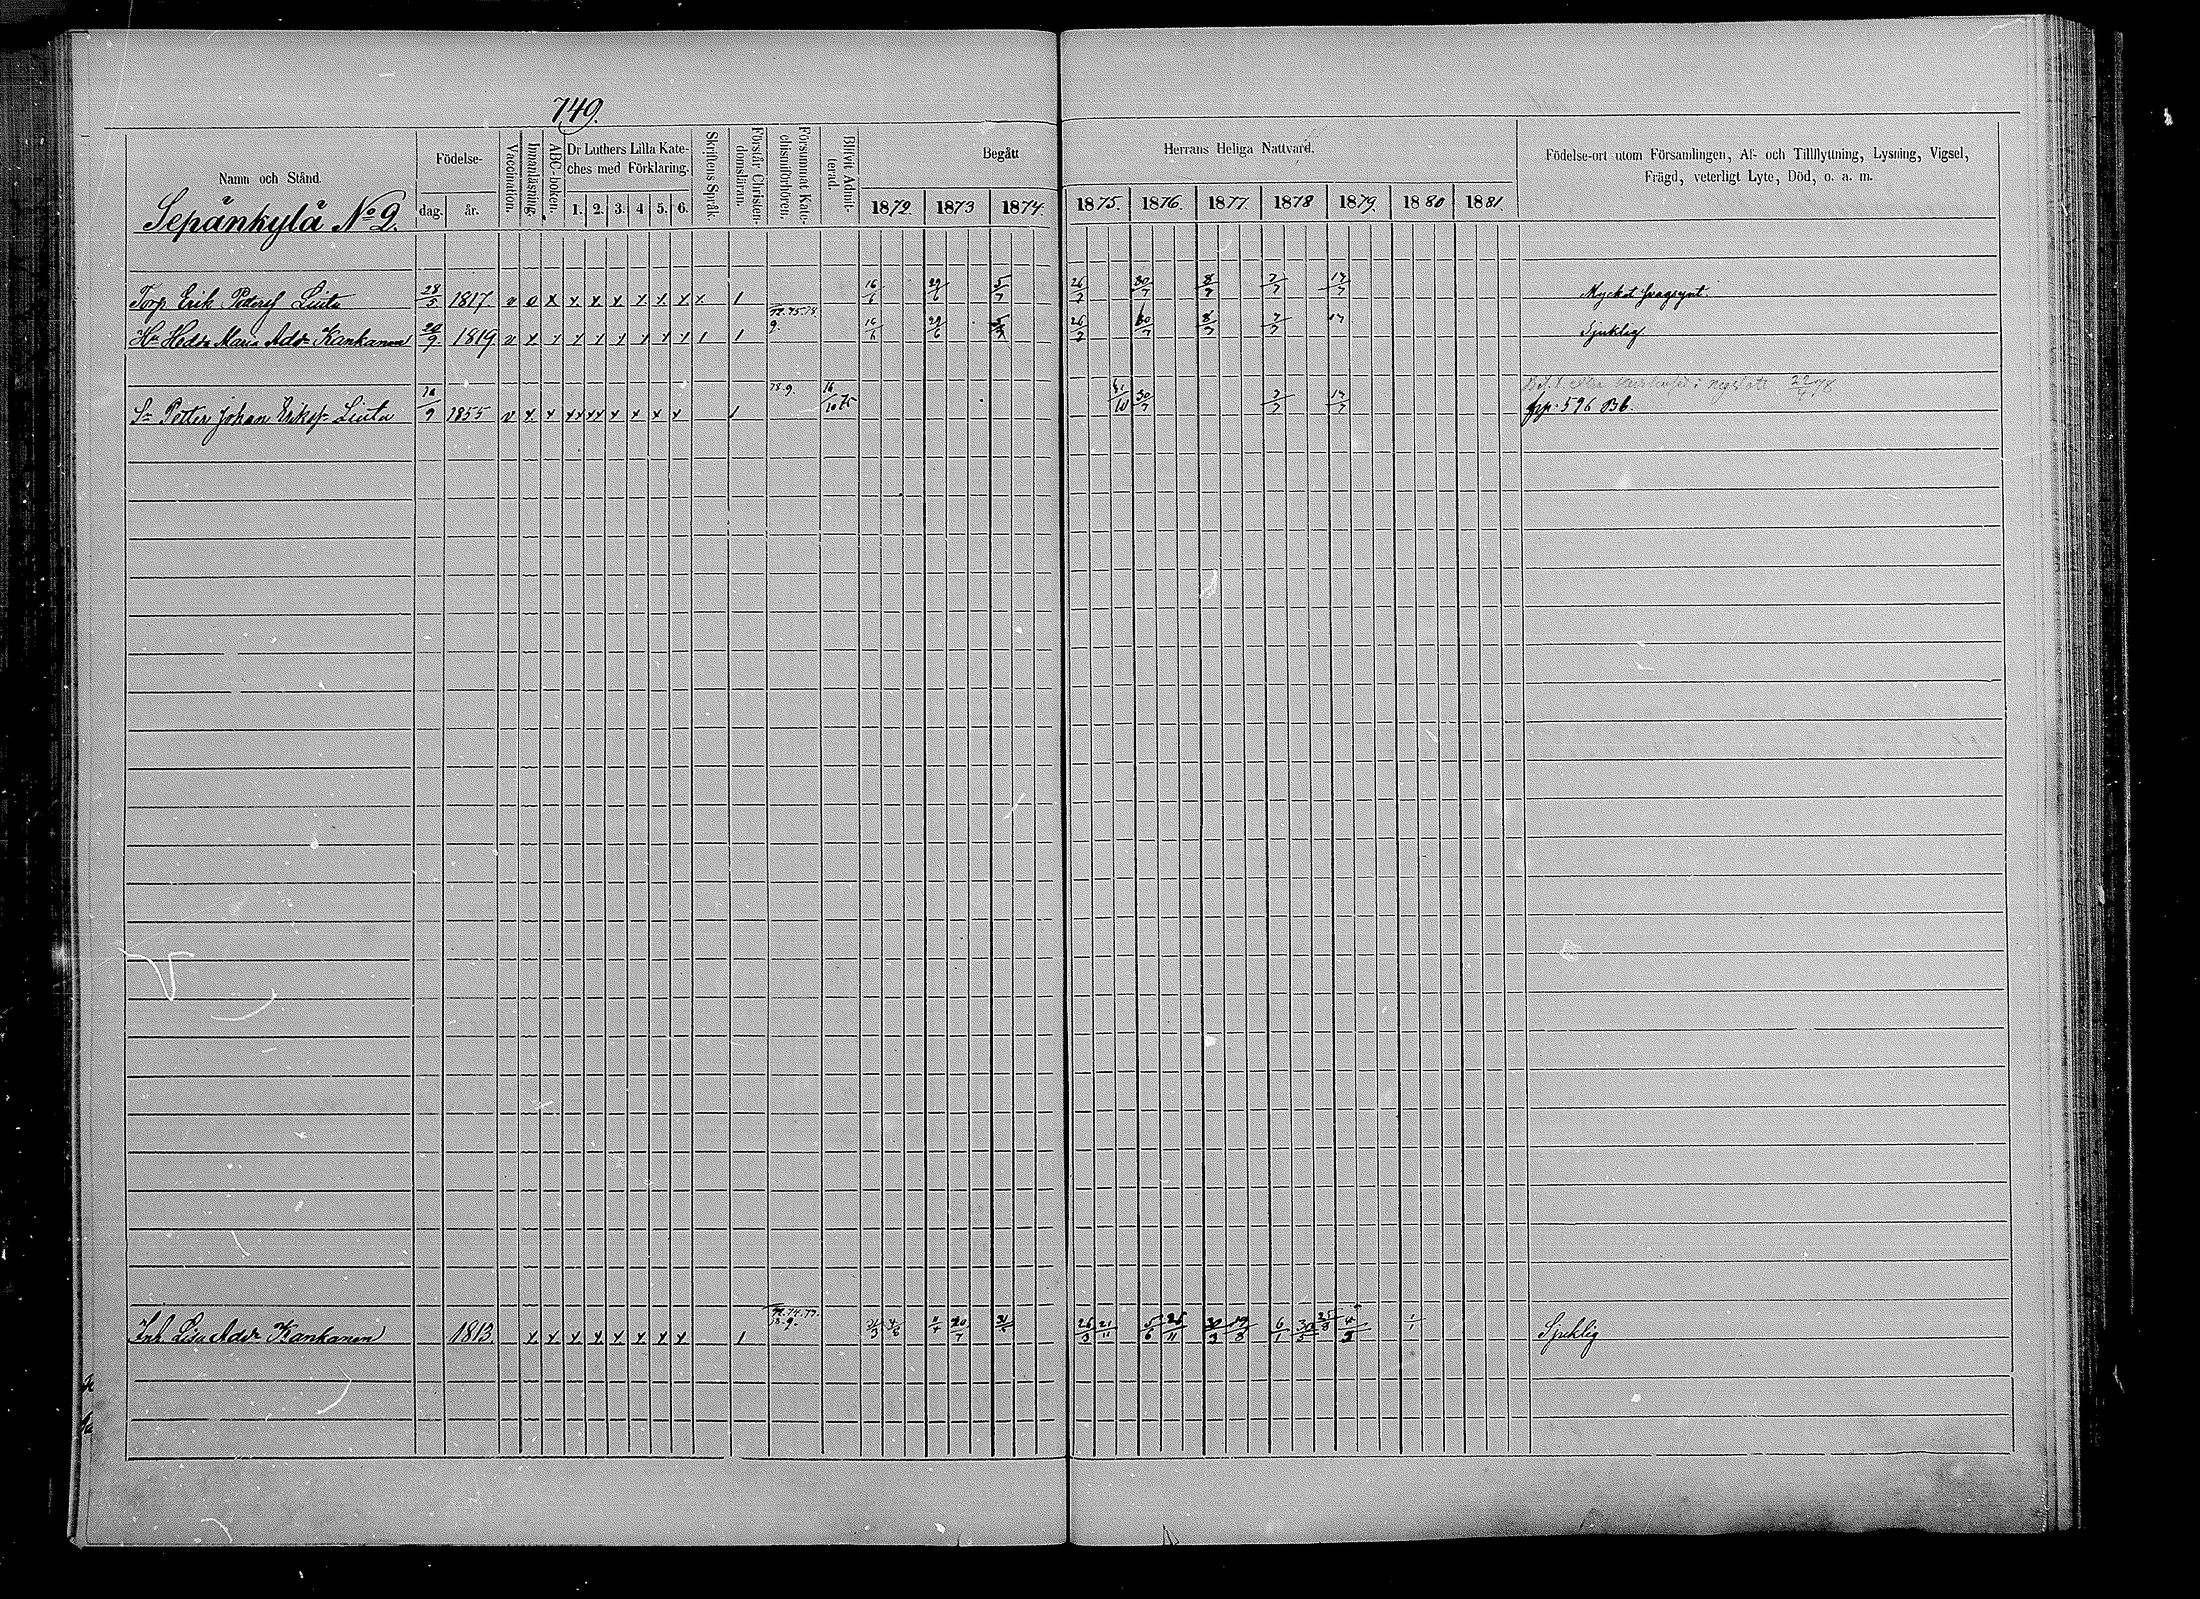 749.
Namn och Stånd.
Födelse-
dag.
år.
Vaccination.
Innanläsning.
ABC-boken.
Dr Luthers Lilla Kate-
ches med Förklaring.
1. 2. 3. 4 5. 6.
Skriftens Språk.
Förstår Christen-
domsläran.
Försummat Kate-
chismiförhören.
Blifvit Admit-
terad.
Begått
Herrans Heliga Nattvard.
1872. 1873 1874. 1875. 1876. 1877. 1878 1879. 1880 1881.
Födelse-ort utom Församlingen, Af- och Tillflyttning, Lysning, Vigsel,
Frägd, veterligt Lyte, Död, o. a. m.
Sepänkylä No 2.
Torp Erik Pettersf Liuta 28/5 1817 v o x x x x x x x x 1 16/6 29/6 5/7 26/7 30/7 8/7 7/7 13/7 Mycket svagsynt.
72.75.78.
9.
Hu Hedda Maria Adsr Kankanen 20/9 1819. v x x x x x x x x 1 1 16/6 29/6 5/7 26/7 30/7 8/7 7/7 13 Sjuklig
78.9.
Sn Petter Johan Eriksf Liuta 9 1855 v x x xx xx x x x x 1 16/10 75 10 30/7 7/7 13/7 pp. 596 Bb.
72.74.77.
78.9.
Inh. Lisa Adsr Kankanen 1813. x x x x x x x x 1 20/7 26/3 21/11 5/6 26/11 30/3 19/8 6/1 30/5 25/8 1/1 Sjuklig